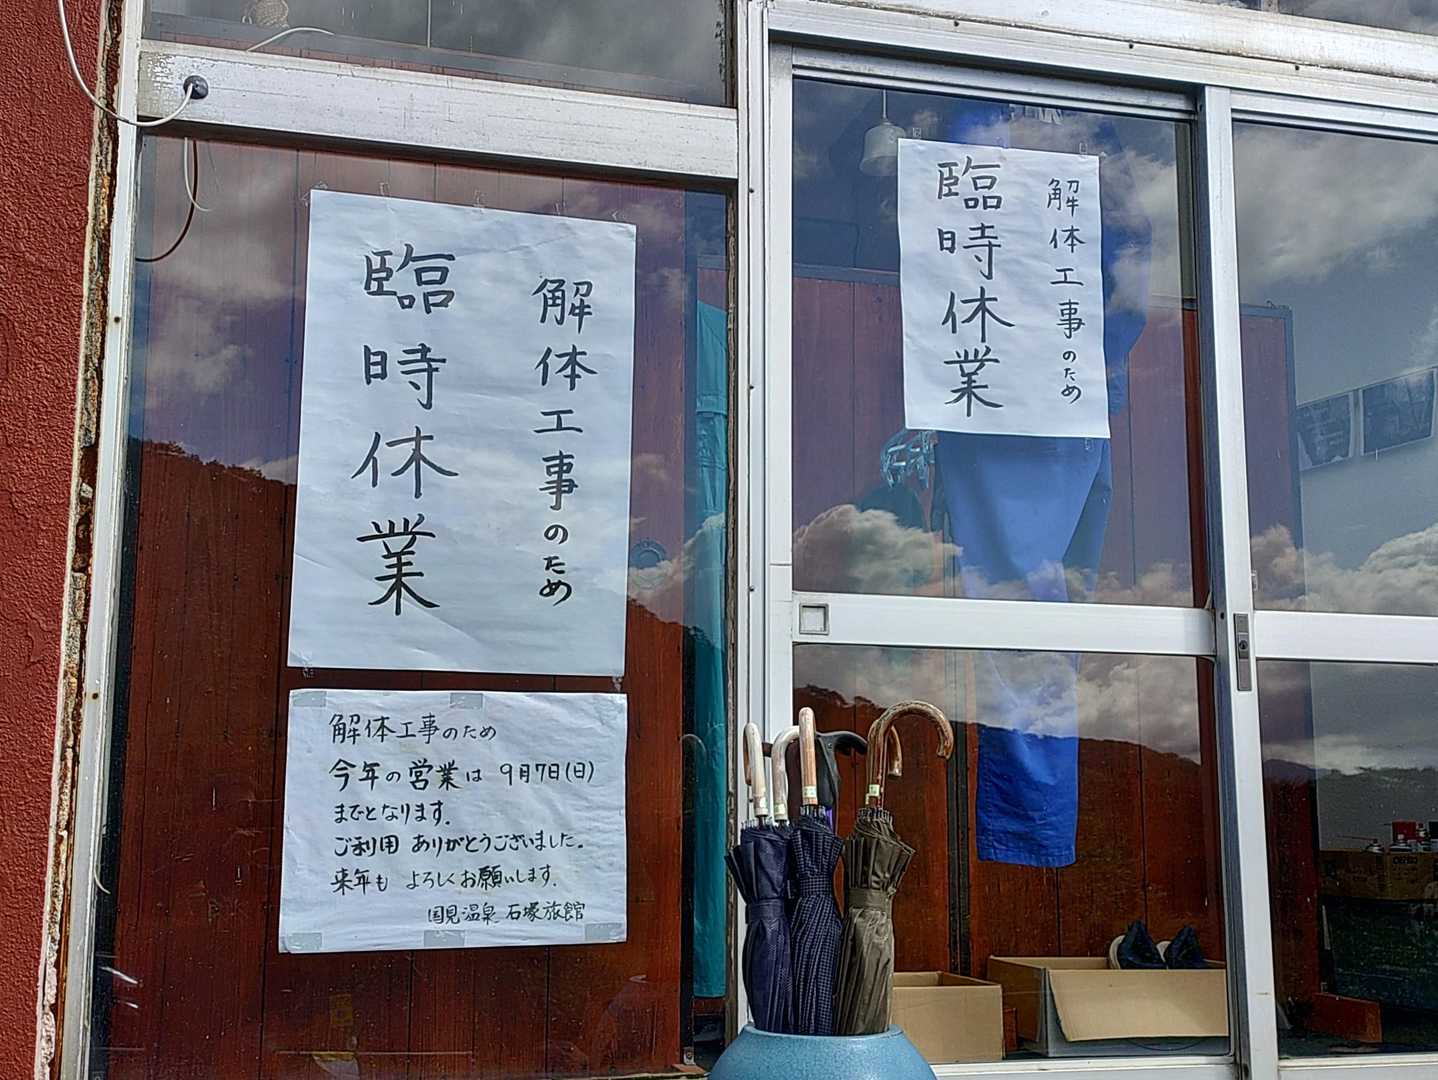 解体工事のため
臨時休業
解体工事のため
今年の営業は 9月7日(日)
までとなります。
ご利用 ありがとうございました。
来年も よろしくお願いします。
国見温泉 石塚旅館
解体工事のため
臨時休業